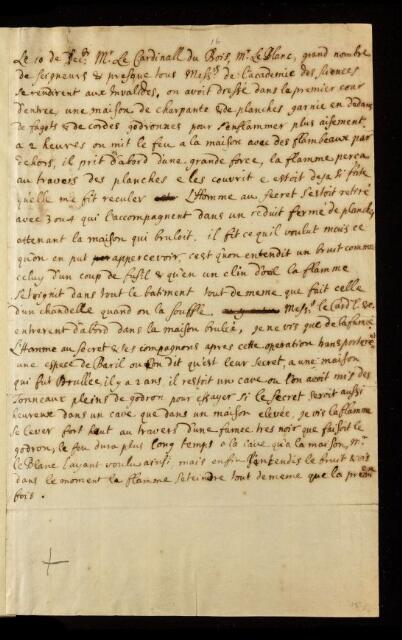 16
Le 10 de Decr. Mr. Le Cardinall du Bois, Mr. Le Blanc, grand nombre
de seigneurs & presque tous Messrs. de l'academie des siences
se rendirent aux Invalides, ou avoit dressé dans la premier cour
d'entree une maison de charpante & de planches garnie en dedans
de fagots & de cordes godronnes pour s'enflammer plus aisement
a 2 heures on mit le feu a la maison avec des flambeaux par
dehors, il prit d'abord d'une grande force, la flamme perca
au travers des planches e les couvrit e estoit deja si forte
qu'elle me fit reculer L'Homme au secret s'estoit retiré
avec 3 ou 4 qui l'accompagnent dans un reduit fermé de planches
attenant la maison qui bruloit. il fit ce qu'il voulut mais ce
qu'on en put appercevoir, c'est qu'on entendit un bruit comme
celuy d'un coup de fusil & qu'en un clin d'oeil la flamme
s'eteignit dans tout le batiment tout de meme que fait celle
d'un chandelle quand on la souffle. Messrs. le Cardl. &c.
entrerent d'abord dans la maison brulée, je ne vis que de la fumee
L'Homme au secret & ses compagnons apres cette operation transporterent
une espece de Baril ou l'on dit qu'est leur secret, a une maison
qui fut Brullee il y a 2 ans il restoit un cave ou l'on avoit mis des
Tonneaux pleins de godron pour essayer si le secret seroit aussi
heureux dans un cave que dans un maison elevée, je vis la flamme
se lever fort haut au travers d'une fumee tres noir que faisoit le
godron, le feu dura plus long temps a la cave qu'a la maison, Mr.
le Blanc l'ayant voulu ainsi, mais enfin j'entendis le bruit & vis
dans le moment la flamme s'eteindre tout de meme que la premre
fois.